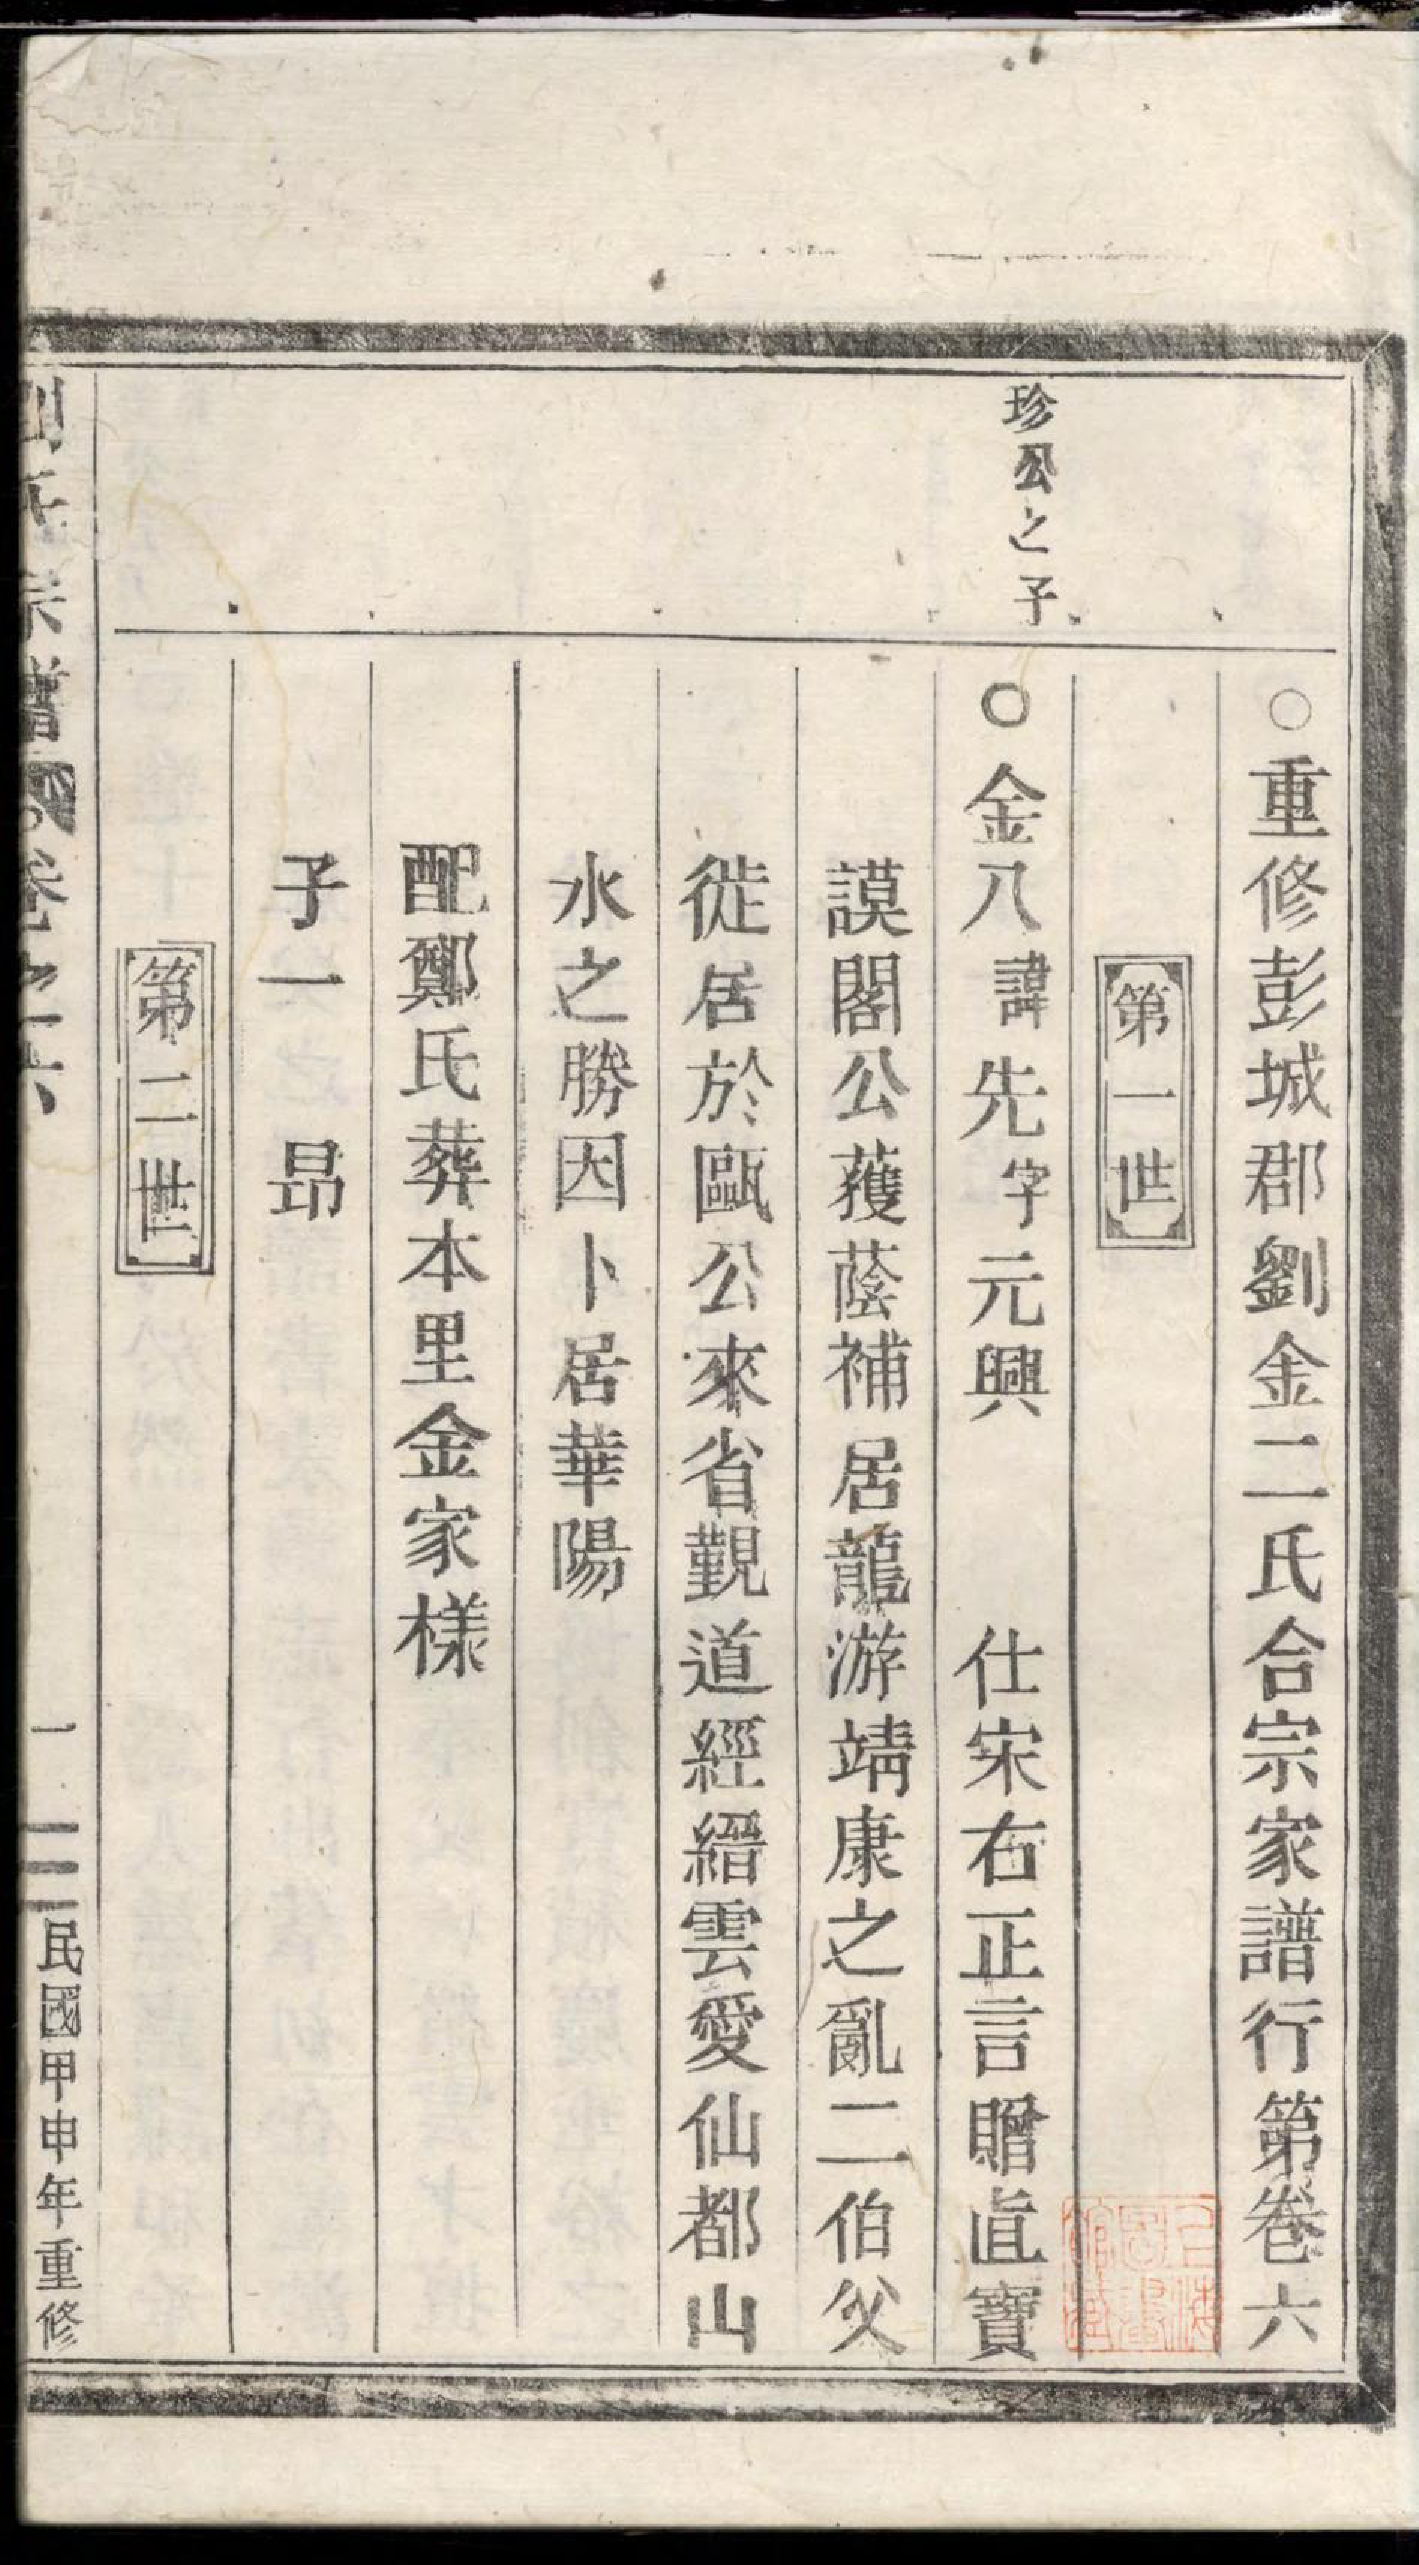 ○重修彭城郡劉金二氏合宗家譜行第卷六
第一世
珍公之子
○金八諱先字元興 仕宋右正言贈直寶
謨閣公蔭補居龍游靖康之亂二伯父
徙居於甌公來省觀道經縉雲愛仙都山
水之勝因卜居華陽
配鄭氏葬本里金家樣
子一 昻
第二世
劉氏宗譜 卷之六
一
民國甲申年重修
上海圖書館藏